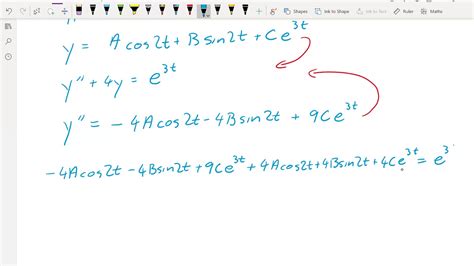 Shapes Ink to Shape Ink to Text Maths
y = A cos2t + B sin2t + Ce^{3t}
y'' + 4y = e^{3t}
y'' = -4A cos2t - 4B sin2t + 9Ce^{3t}
-4A cos2t - 4B sin2t + 9Ce^{3t} + 4A cos2t + 4B sin2t + 4Ce^{3t} = e^3